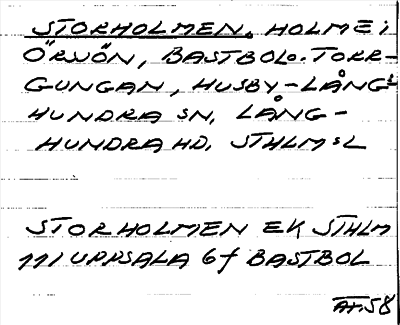 STORHOLMEN. HOLME i
ÖRSJÖN, BASTBOL o. TORR-
GUNGAN, HUSBY-LÅNG-
HUNDRA SN, LÅNG-
HUNDRA HD. STHLMS L
STORHOLMEN EK STHLM
111 UPPSALA 6f BASTBOL
AT.58